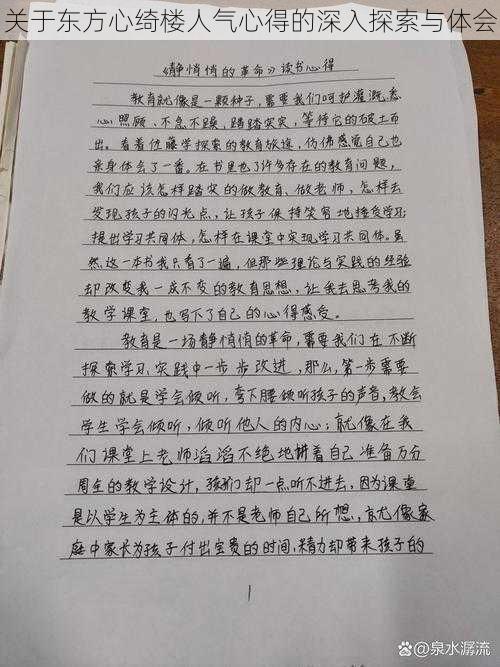 关于东方心绮楼人气心得的深入探索与体会
《静悄悄的革命》读书心得
教育就像是一颗种子,需要我们呵护灌溉,悉
心照顾、不急不躁,踏踏实实,等待它的破土而
出。看着佐藤学探索的教育旅途,仿佛感觉自己也
亲身体会了一番。在书里也了许多存在的教育问题,
我们应该怎样踏实的做教育、做老师,怎样去
发现孩子的闪光点,让孩子保持笑容地接受学习
提出学习共同体,怎样在课堂中实现学习共同体。虽
然这一本书我只看了一遍,但那些理论与实践的经验
却改变我一成不变的教育思想,让我去思考我的
教学课堂,也写下了自己的心得感受。
教育是一场静悄悄的革命,需要我们在不断
探索学习、实践中一步步改进,那么,第一步需要
做的就是学会倾听,弯下腰倾听孩子的声音,教会
学生学会倾听,倾听他人的内心;就像在我
们课堂上老师滔滔不绝地讲着自己准备万分
周全的教学设计,孩子们却一点听不进去,因为课堂
是以学生为主体的,并不是老师自己所想,就像家
庭中家长为孩子付出宝贵的时间、精力却带来孩子的
1
@泉水潺流